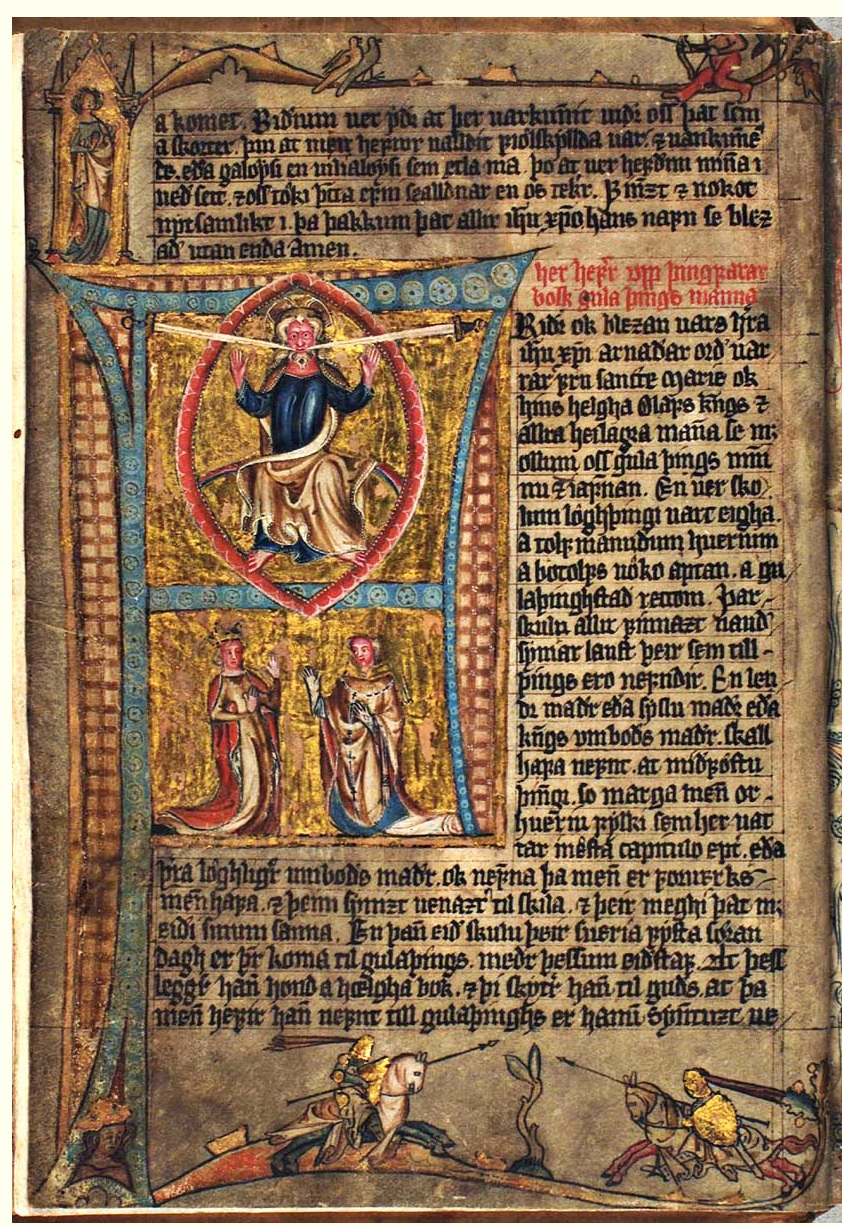 a komet. Bidium ver þes at þer varkunnit vidr oss þat sem
a skorter. þui at men hefuir
de. eða
ned sett. ⁊ oss toki þetta
samlikt i. þa þakkum þat allir ihu xpo hans nafn se blez
ad' utan enda Amen.
her hefr vpp þingfarar
bolk gula þings manna
Ridr ok blezan uars hra
ihu xpi arnaðar ord uar
rar fru sancte Marie ok
hins helgha Olafs kngs ⁊
allra heilagra mana se m;
ollum oss gula þings mm
nu ⁊ iafnan. En ver sko
lum löghþingi uart eigha.
A tolf manudum huerium
a botolfs uöko aptan. a gu
laþinghstad rettom. Þar
skulu allir finnazt naud
syniar laust þeir sem till
þings ero nefndir. En len
dr madr eða syslu madr eða
kngs vmbods madr. skall
hafa nefnt. at midföstu
þingi. so marga men or
huerju fylki sem her uat
tar i nesta capitulo ept. eða
þra löghligr umbods madr. ok nefna þa men er forverks
men hafa. ⁊ þeim synizt uenazt til skila. ⁊ þeir meghi þat m;
eidi sinum sanna. En þan eid skulu þeir sueria fysta
dagh er þr koma til gulaþings. medr þessum eidstaf. At þess
leggr han hond a hælgha bok. ⁊ þi skytr han til guds. at þa
men hefir han nefnt till gulaþinghs er hanum synizt ue